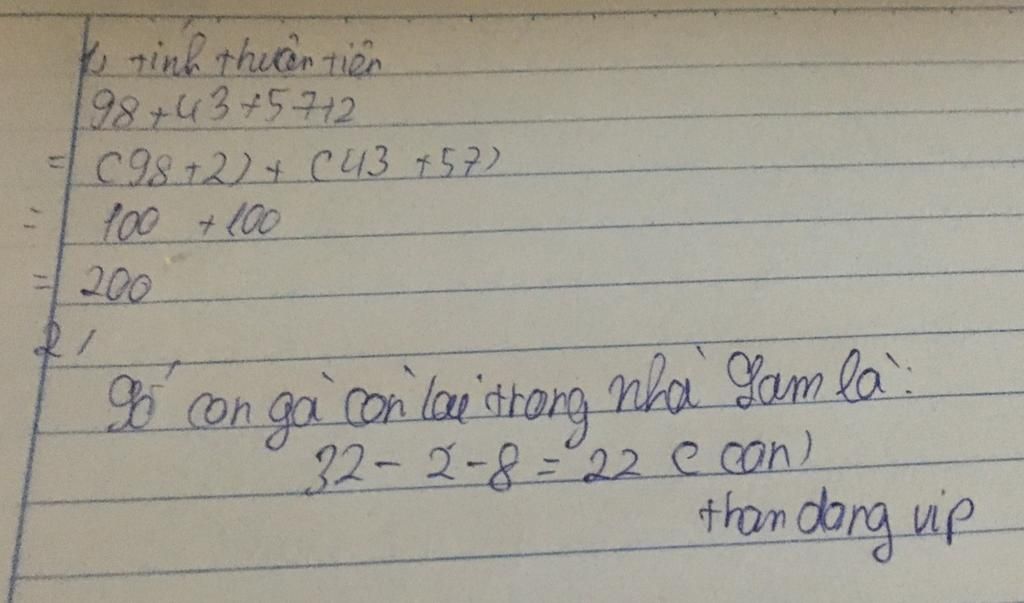 1, tính thuận tiện
98+43+57+2
= (98+2)+(43+57)
= 100 +100
= 200
2/
Số con gà còn lại trong nhà Lam là:
32-2-8=22 (con)
than dong vip